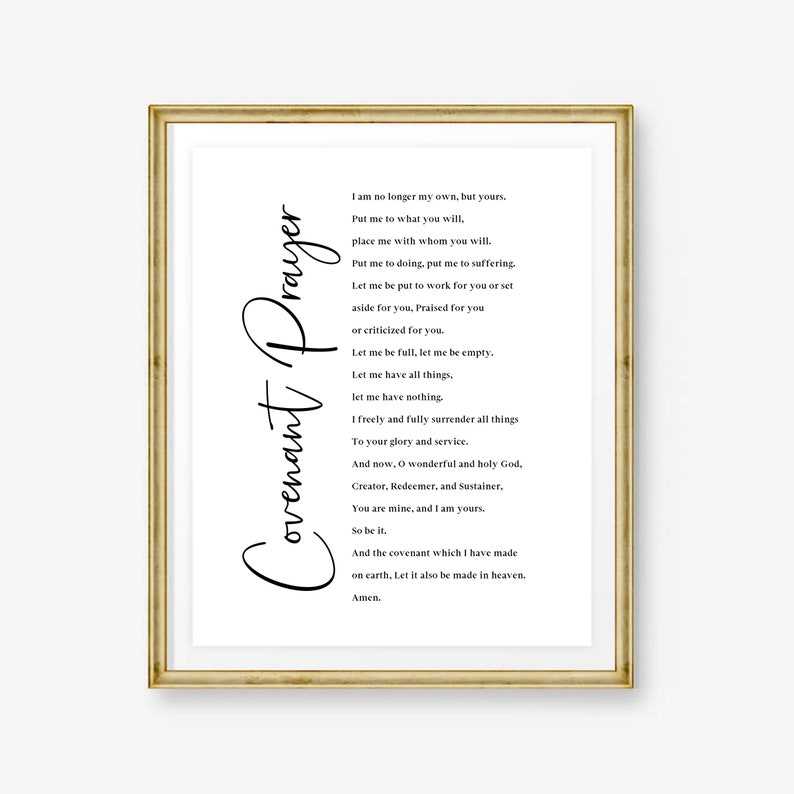 Covenant Prayer
I am no longer my own, but yours.
Put me to what you will,
place me with whom you will.
Put me to doing, put me to suffering.
Let me be put to work for you or set
aside for you, Praised for you
or criticized for you.
Let me be full, let me be empty.
Let me have all things,
let me have nothing.
I freely and fully surrender all things
To your glory and service.
And now, O wonderful and holy God,
Creator, Redeemer, and Sustainer,
You are mine, and I am yours.
So be it.
And the covenant which I have made
on earth, Let it also be made in heaven.
Amen.